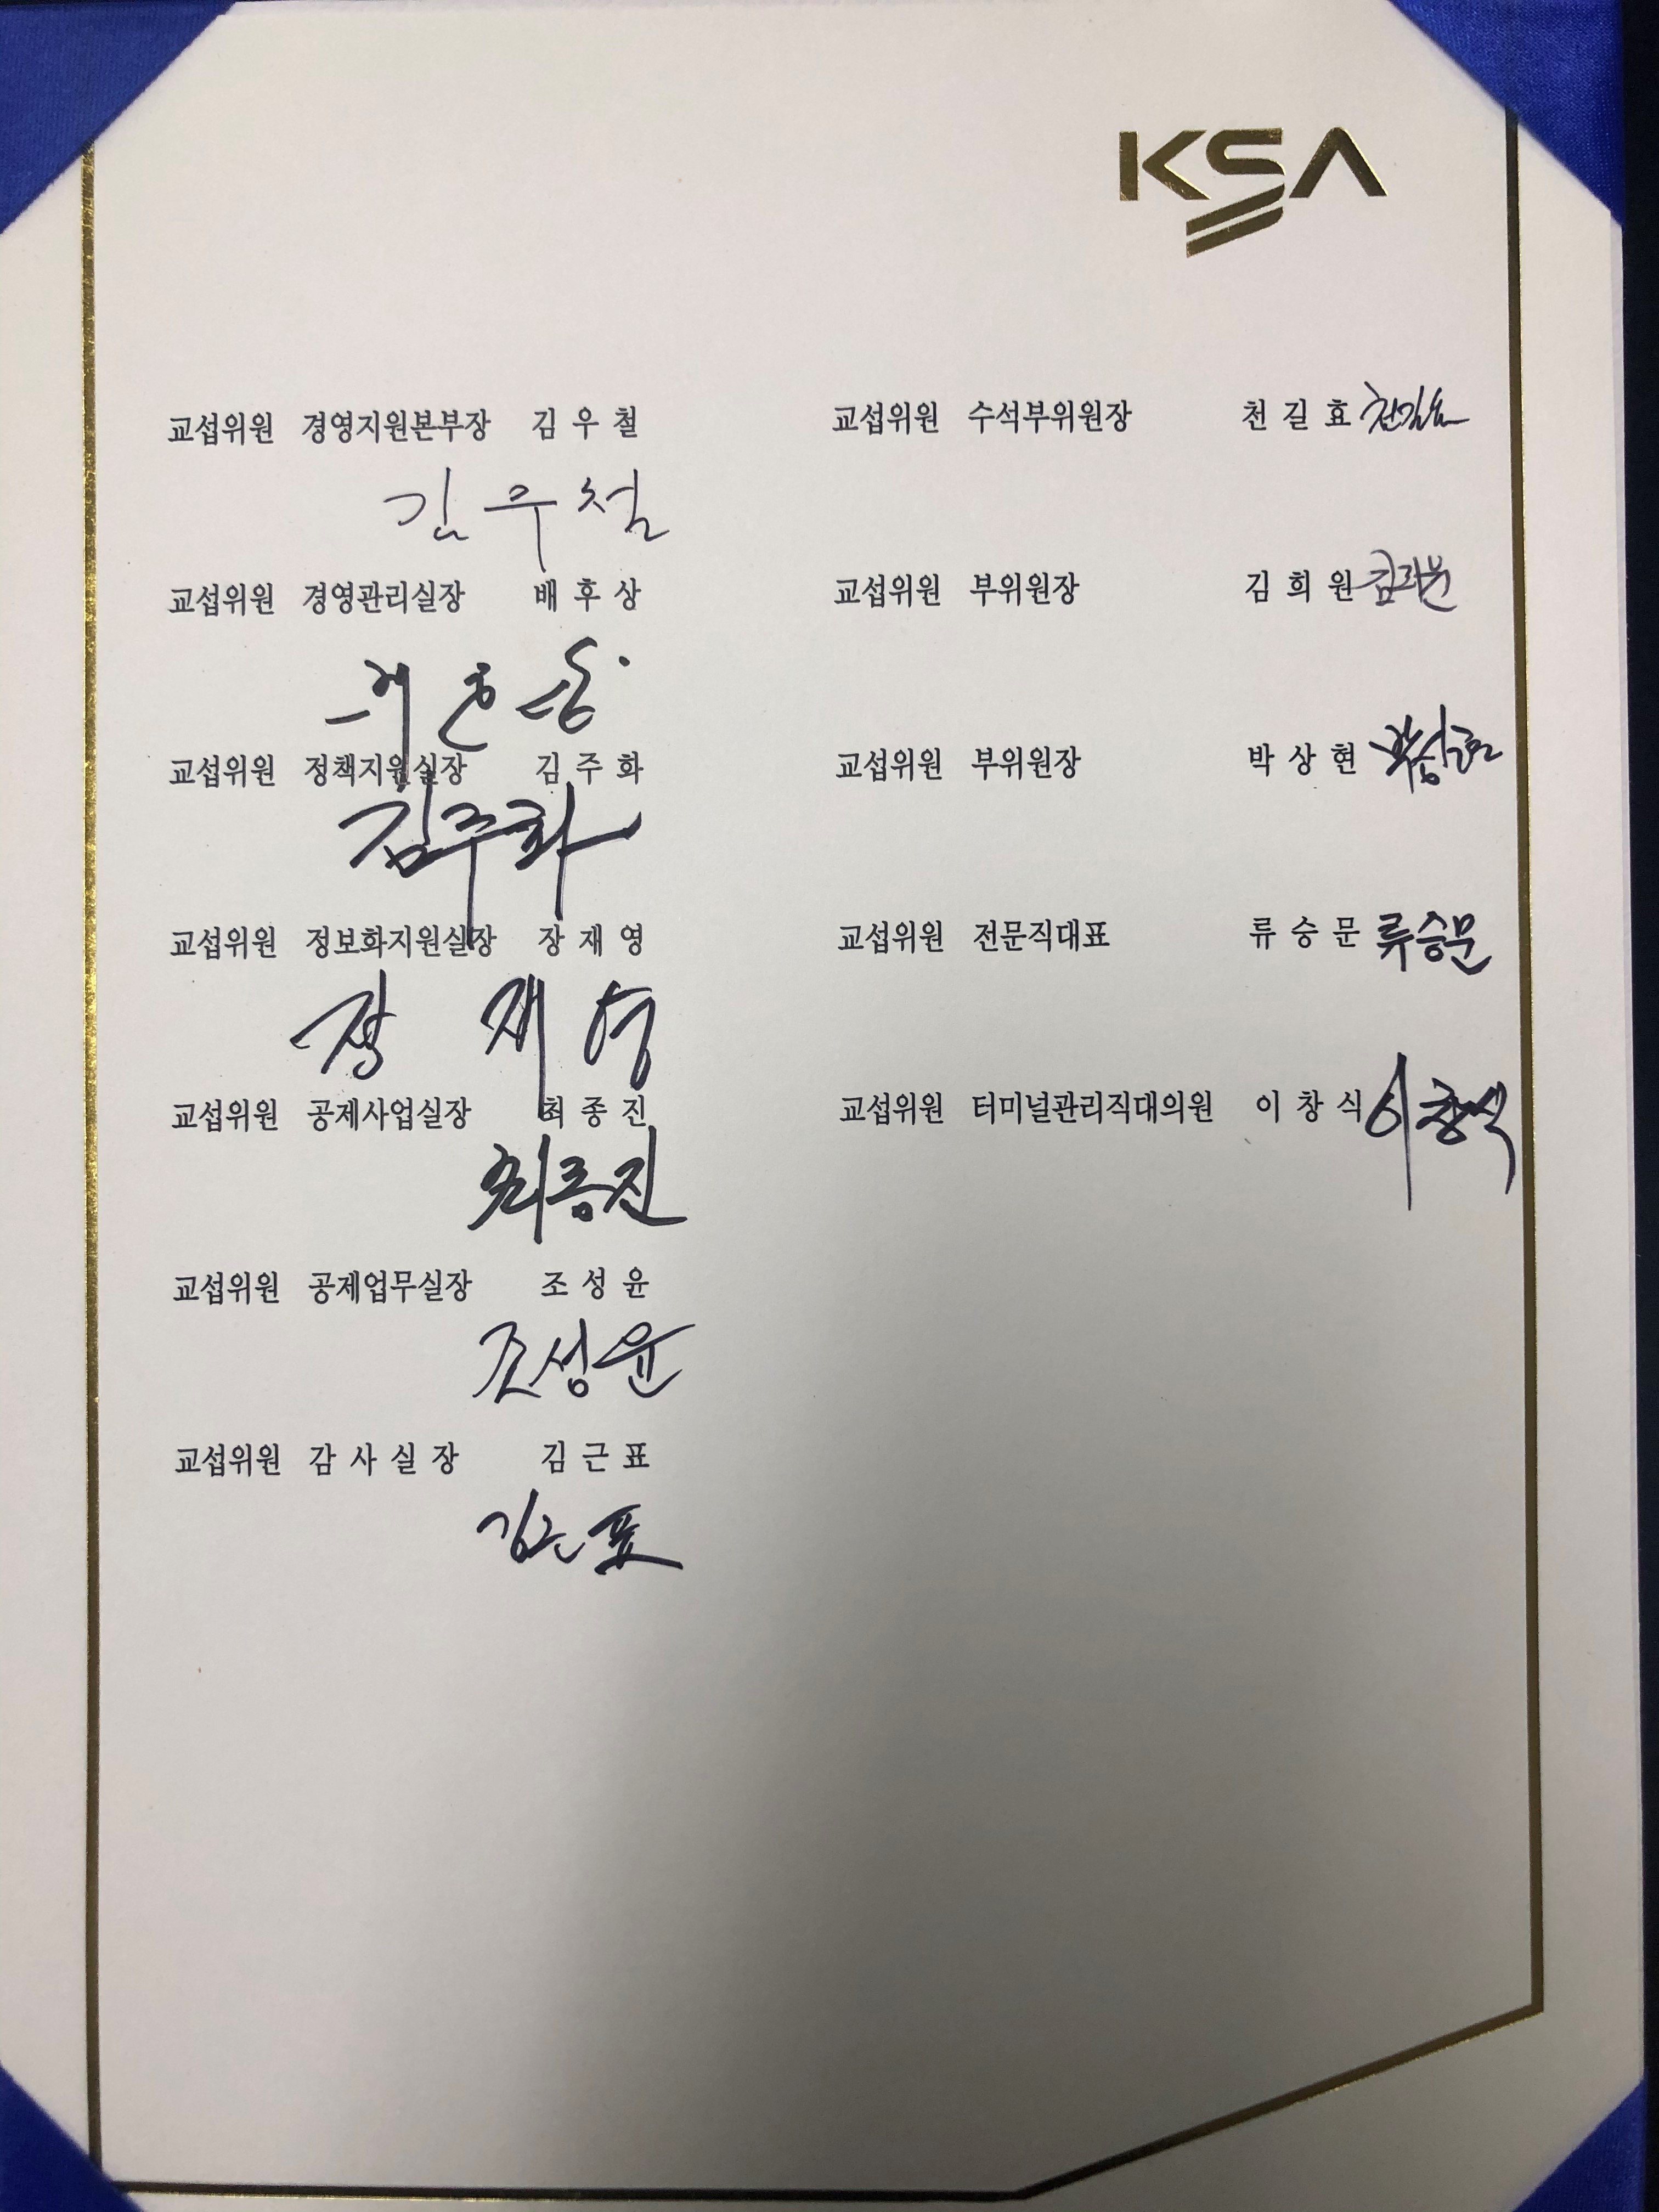 KSA
교섭위원 경영지원본부장 김 우 철
김 우 철
교섭위원 경영관리실장 배 후 상
교섭위원 정책지원실장 김 주 화
김주화
교섭위원 정보화지원실장 장 재 영
장 재 영
교섭위원 공제사업실장 최 종 진
최종진
교섭위원 공제업무실장 조 성 윤
조성윤
교섭위원 감 사 실 장 김 근 표
김근표
교섭위원 수석부위원장 천 길 효 천길효
교섭위원 부위원장 김 희 원 김희원
교섭위원 부위원장 박 상 현 박상현
교섭위원 전문직대표 류 승 문 류승문
교섭위원 터미널관리직대의원 이 창 식 이창식